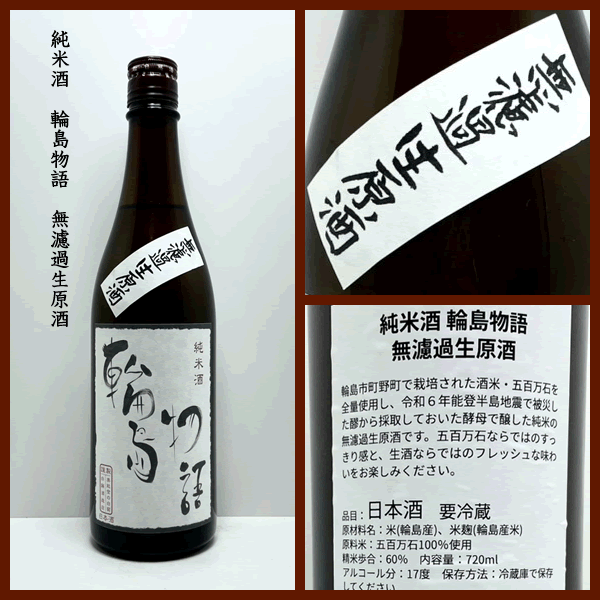 純米酒　輪島物語　無濾過生原酒
無濾過生原酒
純米酒
輪島
物語
日本酒
無濾過生原酒
純米酒 輪島物語
無濾過生原酒
輪島市町野町で栽培された酒米・五百万石を
全量使用し、令和６年能登半島地震で被災し
た醪から採取しておいた酵母で醸した純米の
無濾過生原酒です。五百万石ならではのすっ
きり感と、生酒ならではのフレッシュな味わ
いをお楽しみください。
品目：日本酒　要冷蔵
原材料名：米(輪島産)、米麹(輪島産米)
原料米：五百万石100％使用
精米歩合：60%　内容量：720ml
アルコール分：17度　保存方法：冷蔵庫で保存
してください